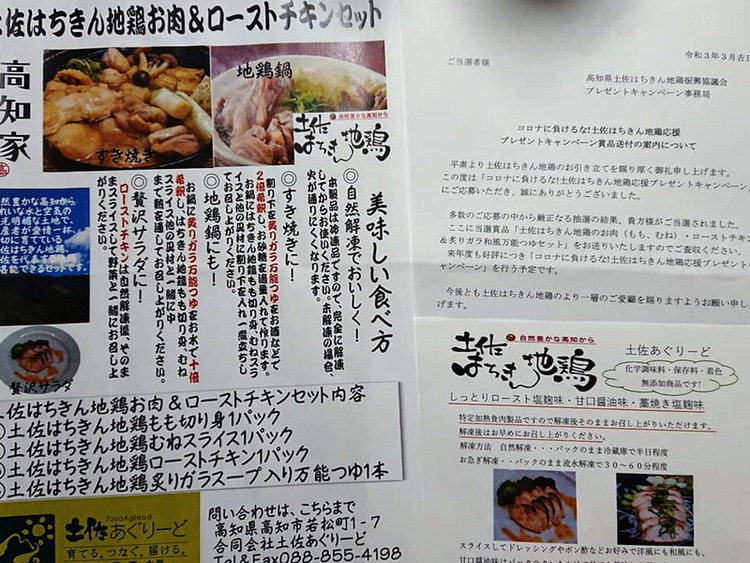 土佐はちきん地鶏お肉&ローストチキンセット
高知家
すき焼き
地鶏鍋
自然豊かな高知から
土佐はちきん地鶏
美味しい食べ方
◎自然解凍でおいしく!
本製品は冷凍品ですので、完全に解凍
してからお使いください。未解凍の場合、
火が通りにくくなります。
◎すき焼きに!
割り下を炙りガラ万能つゆをお酒などで
2倍希釈し、お砂糖を適量入れて作ります。
お鍋に土佐はちきん地鶏もも切り身、むねスラ
イスと他の具材を割り下を入れ一煮立ちし
てお召し上がりください。
◎地鶏鍋にも!
お鍋に炙りガラ万能つゆをお水で十倍
希釈し、はちきん地鶏もも切り身、むね
スライス他の具材と一緒にゆ
まで熱を通してお召し上がりください。
◎贅沢サラダに!
ローストチキンは自然解凍後、そのまま
スライスして、お野菜と一緒にお召し上
がりください。
然豊かな高知から
れいな水と空気の
光明媚な土地で、
産者が愛情一杯、
切に育てている
佐はちきん地鶏、
佐を代表する地鶏
堪能できるセットです。
贅沢サラダ
土佐はちきん地鶏お肉&ローストチキンセット内容
◎土佐はちきん地鶏もも切り身1パック
◎土佐はちきん地鶏むねスライス1パック
◎土佐はちきん地鶏ローストチキン1パック
◎土佐はちきん地鶏炙りガラスープ入り万能つゆ1本
TosaAglead
土佐あぐりーど
育てる。つなぐ。届ける。
問い合わせは、こちらまで
高知県高知市若松町1-7
合同会社土佐あぐりーど
Tel&Fax088-855-4198
令和3年3月吉日
ご当選者様
高知県土佐はちきん地鶏振興協議会
プレゼントキャンペーン事務局
コロナに負けるな!土佐はちきん地鶏応援
プレゼントキャンペーン賞品送付の案内について
平素より土佐はちきん地鶏のお引き立てを賜り厚く御礼申し上げます。
この度は「コロナに負けるな!土佐はちきん地鶏応援プレゼントキャンペーン
にご応募いただき、誠にありがとうございました。
多数のご応募の中から厳正なる抽選の結果、貴方様がご当選されました。
ここに当選賞品「土佐はちきん地鶏のお肉(もも、むね)・ローストチキン
&炙りガラ和風万能つゆセット」をお送りいたしますのでご査収ください。
来年度も好評につき「コロナに負けるな!土佐はちきん地鶏応援プレゼントキ
ャンペーン」を行う予定です。
今後とも土佐はちきん地鶏のより一層のご愛顧を賜りますようお願い申し
げます。
自然豊かな高知から
土佐はちきん地鶏
土佐あぐりーど
化学調味料・保存料・着色
無添加商品です!
しっとりロースト塩麹味・甘口醤油味・藁焼き塩麹味
特定加熱食肉製品ですので解凍後そのままお召し上がりいただけます。
解凍後はお早めにお召し上がりください。
解凍方法 自然解凍・・・パックのまま冷蔵庫で半日程度
お急ぎ解凍・・パックのまま流水解凍で30~60分程度
スライスしてドレッシングやポン酢などお好みで洋風にも和風にも、